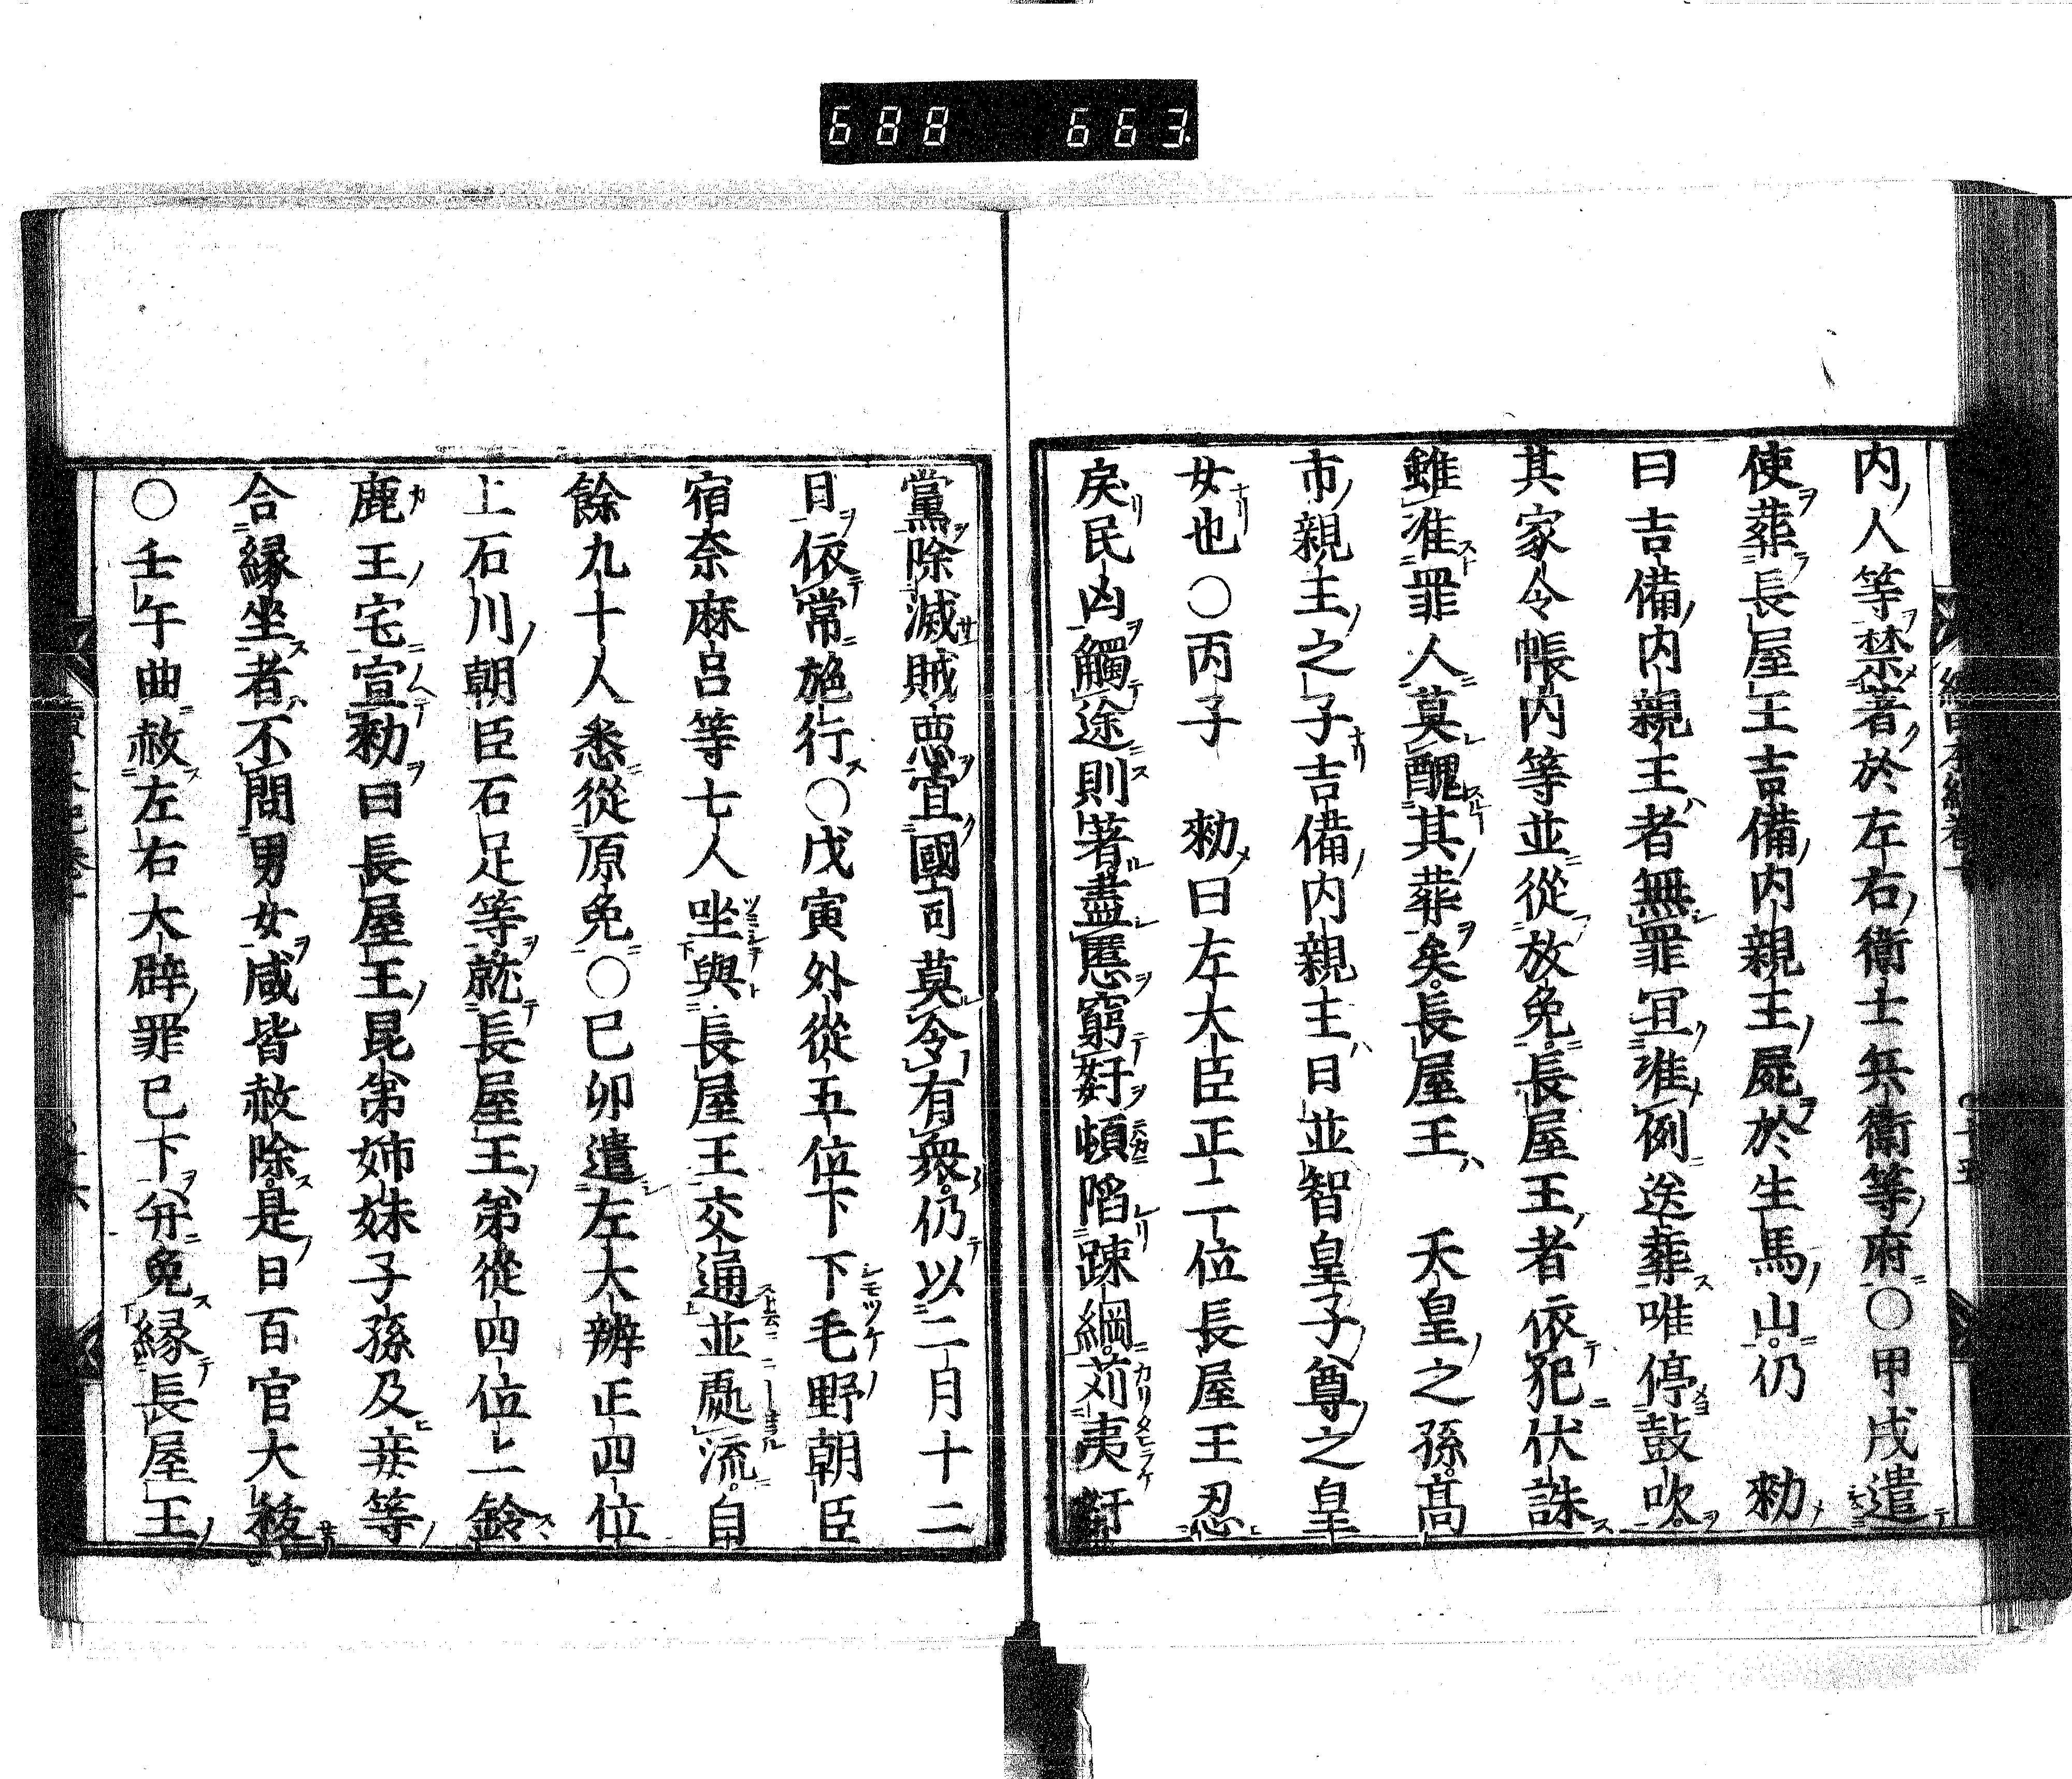 688 663
内人等禁著於左右衛士兵衛等府○甲戌遣
使葬長屋王吉備内親王屍於生馬山仍　勑
曰吉備内親王者無罪冝准例送葬唯停鼓吹
其家令帳内等並從放免長屋王者依犯伏誅
雖准罪人莫醜其葬矣長屋王　天皇之孫髙
市親王之子吉備内親王日並智皇子尊之皇
女也○丙子　勑曰左大臣正二位長屋王忍
戻昆凶觸途則著盡慝窮奸頓陷踈網苅夷
黨除滅賊悪宜國司莫令有衆仍以二月十二
日依常施行○戊寅外從五位下下毛野朝臣
宿奈麻呂等七人坐與長屋王交通並處流自
餘九十人悉從原免○己卯遣左大辨正四位
上石川朝臣石足等就長屋王弟從四位上鈴
鹿王宅宣勑曰長屋王昆弟姉妹子孫及妾等
合縁坐者不問男女咸皆赦除是日百官大祓
○壬午曲赦左右大辟罪已下并免縁長屋王